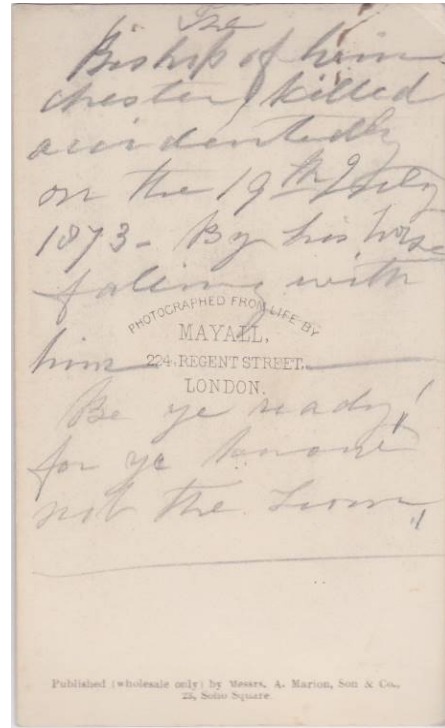 The
Bishop of Win
chester, killed
accidentedly
on the 19th July
1873 - By his horse
falling with
PHOTOGRAPHED FROM LIFE BY
MAYALL,
him
224, REGENT STREET.
LONDON.
Be ye ready!
for ye knowe
not the hour,,
Published (wholesale only) by Messrs. A. Marion, Son & Co.,
22, Soho Square.